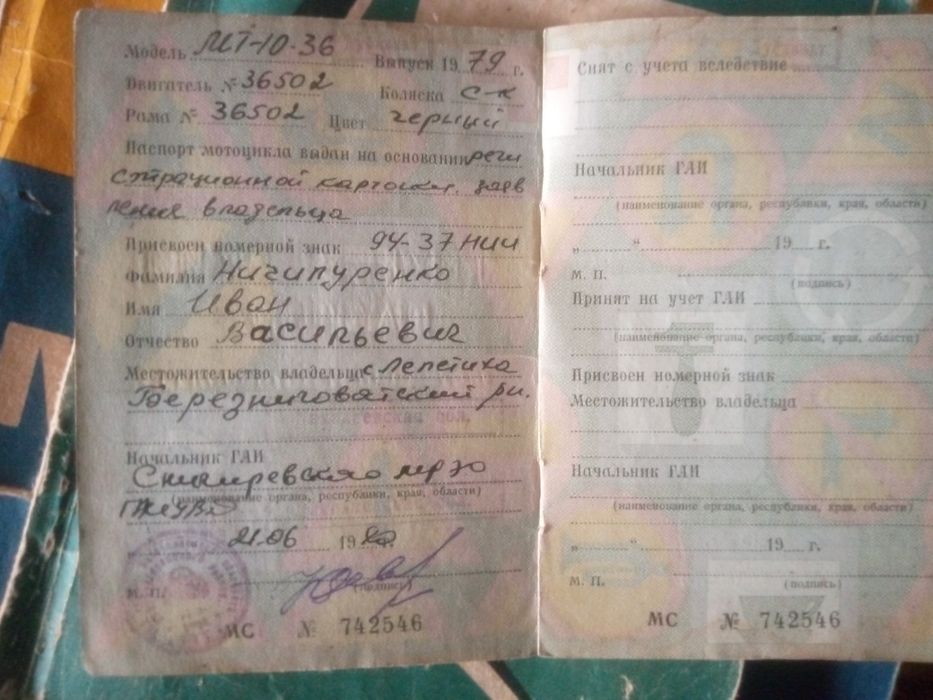 Модель МТ-10-36 Выпуск 1979 г.
Двигатель № 36502 Коляска с-к
Рама № 36502 Цвет черный
Паспорт мотоцикла выдан на основании реги
страционной карточки, заяв
ления владельца
Присвоен номерной знак 94-37 НИИ
Фамилия Ничипуренко
Имя Иван
Отчество Васильевич
Местожительство владельца с Лепетиха
Березниговатский р-н.
Начальник ГАИ
Снигиревская мрэо
(наименование органа, республики, края, области)
21.06 1980
(подпись)
М. П.
МС № 742546
Снят с учета вследствие
Начальник ГАИ
(наименование органа, республики, края, области)
„ “ 19 г.
М. П.
(подпись)
Принят на учет ГАИ
(наименование органа, республики, края, области)
Присвоен номерной знак
Местожительство владельца
Начальник ГАИ
(наименование органа, республики, края, области)
„ “ 19 г.
М. П. (подпись)
МС № 742546